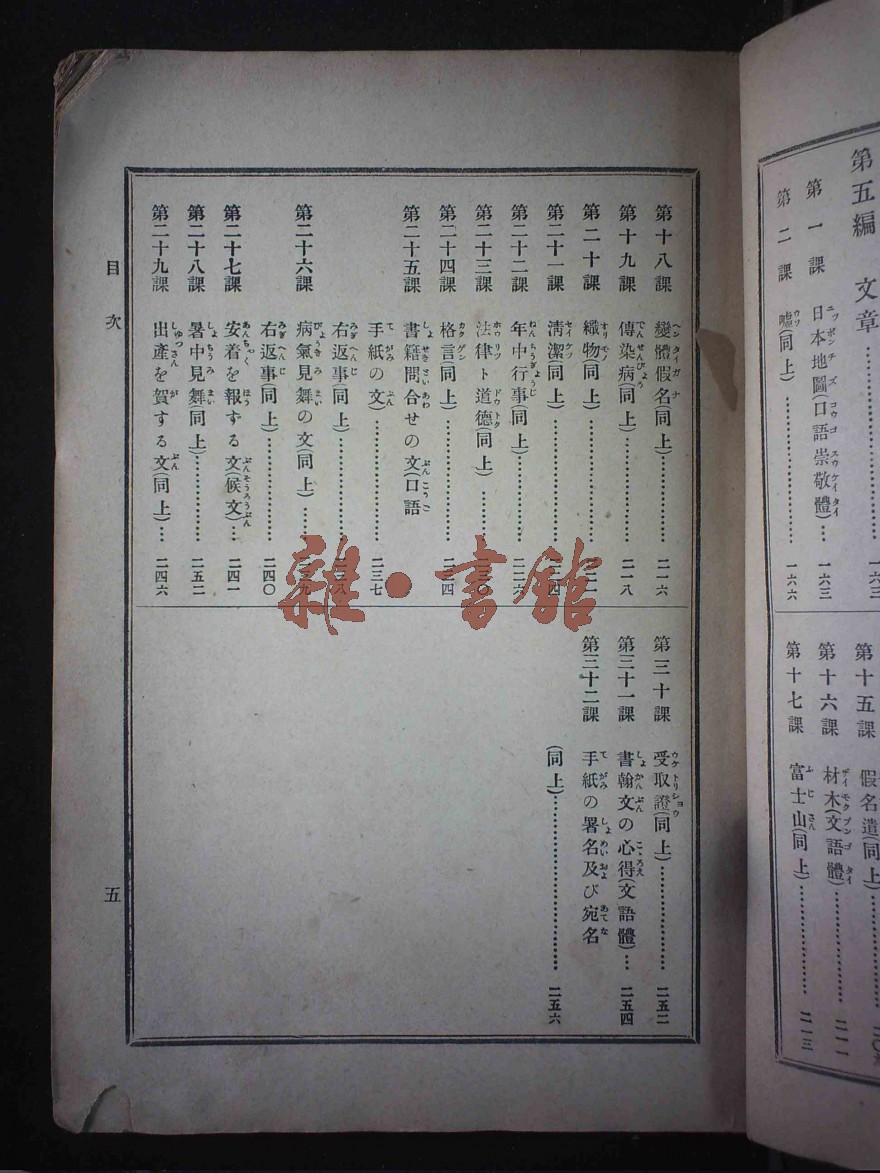 第五編 文章………… 一六三
第一課 日本地圖(口語崇敬體)… 一六三
第二課 噓(同上)………… 一六六
第十五課 假名遣(同上)
第十六課 材木(文語體)………… 二一一
第十七課 富士山(同上)………… 二一三
第十八課 變體假名(同上)………… 二一六
第十九課 傳染病(同上)………… 二一八
第二十課 織物(同上)…………
第二十一課 淸潔同上)…………
第二十二課 年中行事(同上)………… 二二六
第二十三課 法律ト道德(同上)…………
第二十四課 格言(同上)…………
第二十五課 書籍問合せの文(口語
手紙の文)………… 二三七
右返事(同上)…………
第二十六課 病氣見舞の文(同上)……
右返事(同上)………… 二四〇
第二十七課 安着を報ずる文(候文)… 二四一
第二十八課 暑中見舞(同上)………… 二五二
第二十九課 出產を賀する文(同上)… 二四六
第三十課 受取證(同上)………… 二五二
第三十一課 書翰文の心得(文語體)… 二五四
第三十二課 手紙の署名及び宛名
(同上)………… 二五六
目次
五
雜·書館